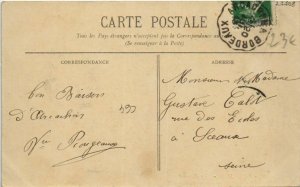 CARTE POSTALE
Tous les Pays étrangers n'acceptent pas la Correspondance au
(Se renseigner à la Poste)
BORDEAUX
CORRESPONDANCE
ADRESSE
bon Baisers
d'Arcachon
Monsieur et Madame
Gustave
rue des Ecoles
à Sceaux
Seine